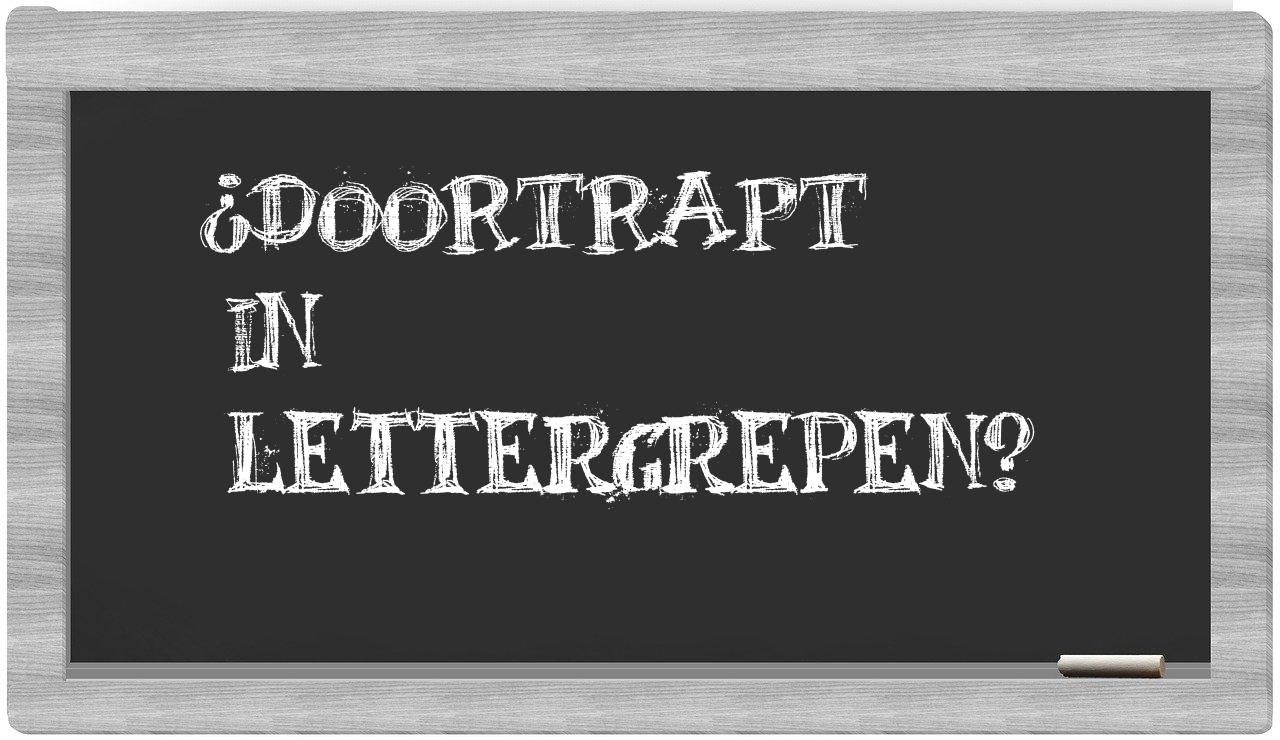 ¿DOORTRAPT
IN
LETTERGREPEN?